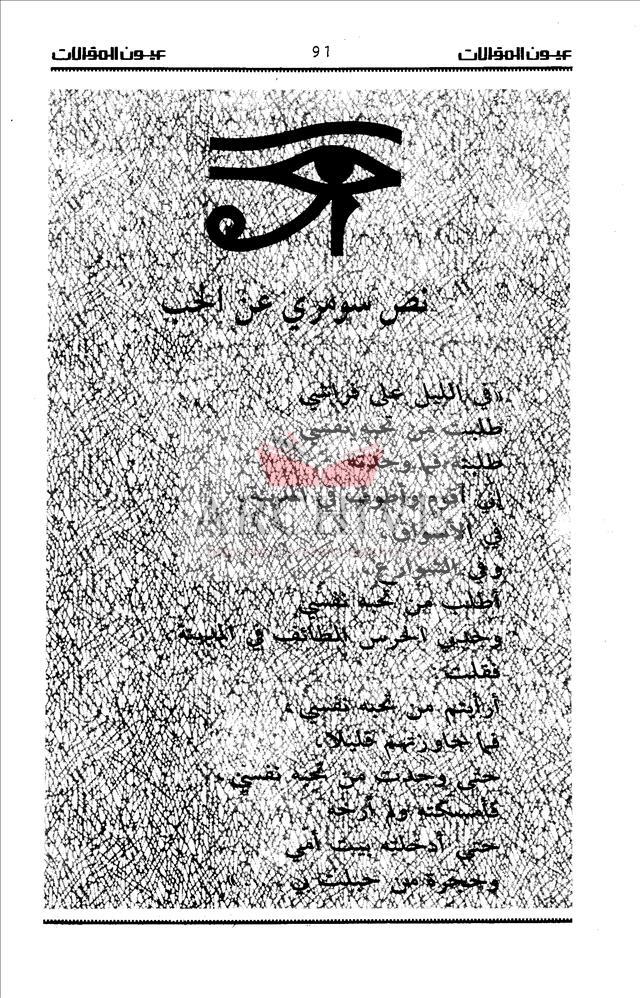 عيون المقالات
91
عيون المقالات
نص سومري عن الحب
«في الليل على فراشي
طلبت من تحبه نفسي
طلبته فما وجدته
إني أقوم وأطوف في المدينة،
في الأسواق،
وفي الشوارع،
أطلب من تحبه نفسي
وجدني الحرس الطائف في المدينة.
فقلت:
أرأيتم من تحبه نفسي،
فما جاوزتهم قليلا،
حتى وجدت من تحبه نفسي،
فأمسكته ولم أرخه
حتى أدخلته بيت أمي
وحجرة من حبلت بي . . »
ARCHIVE